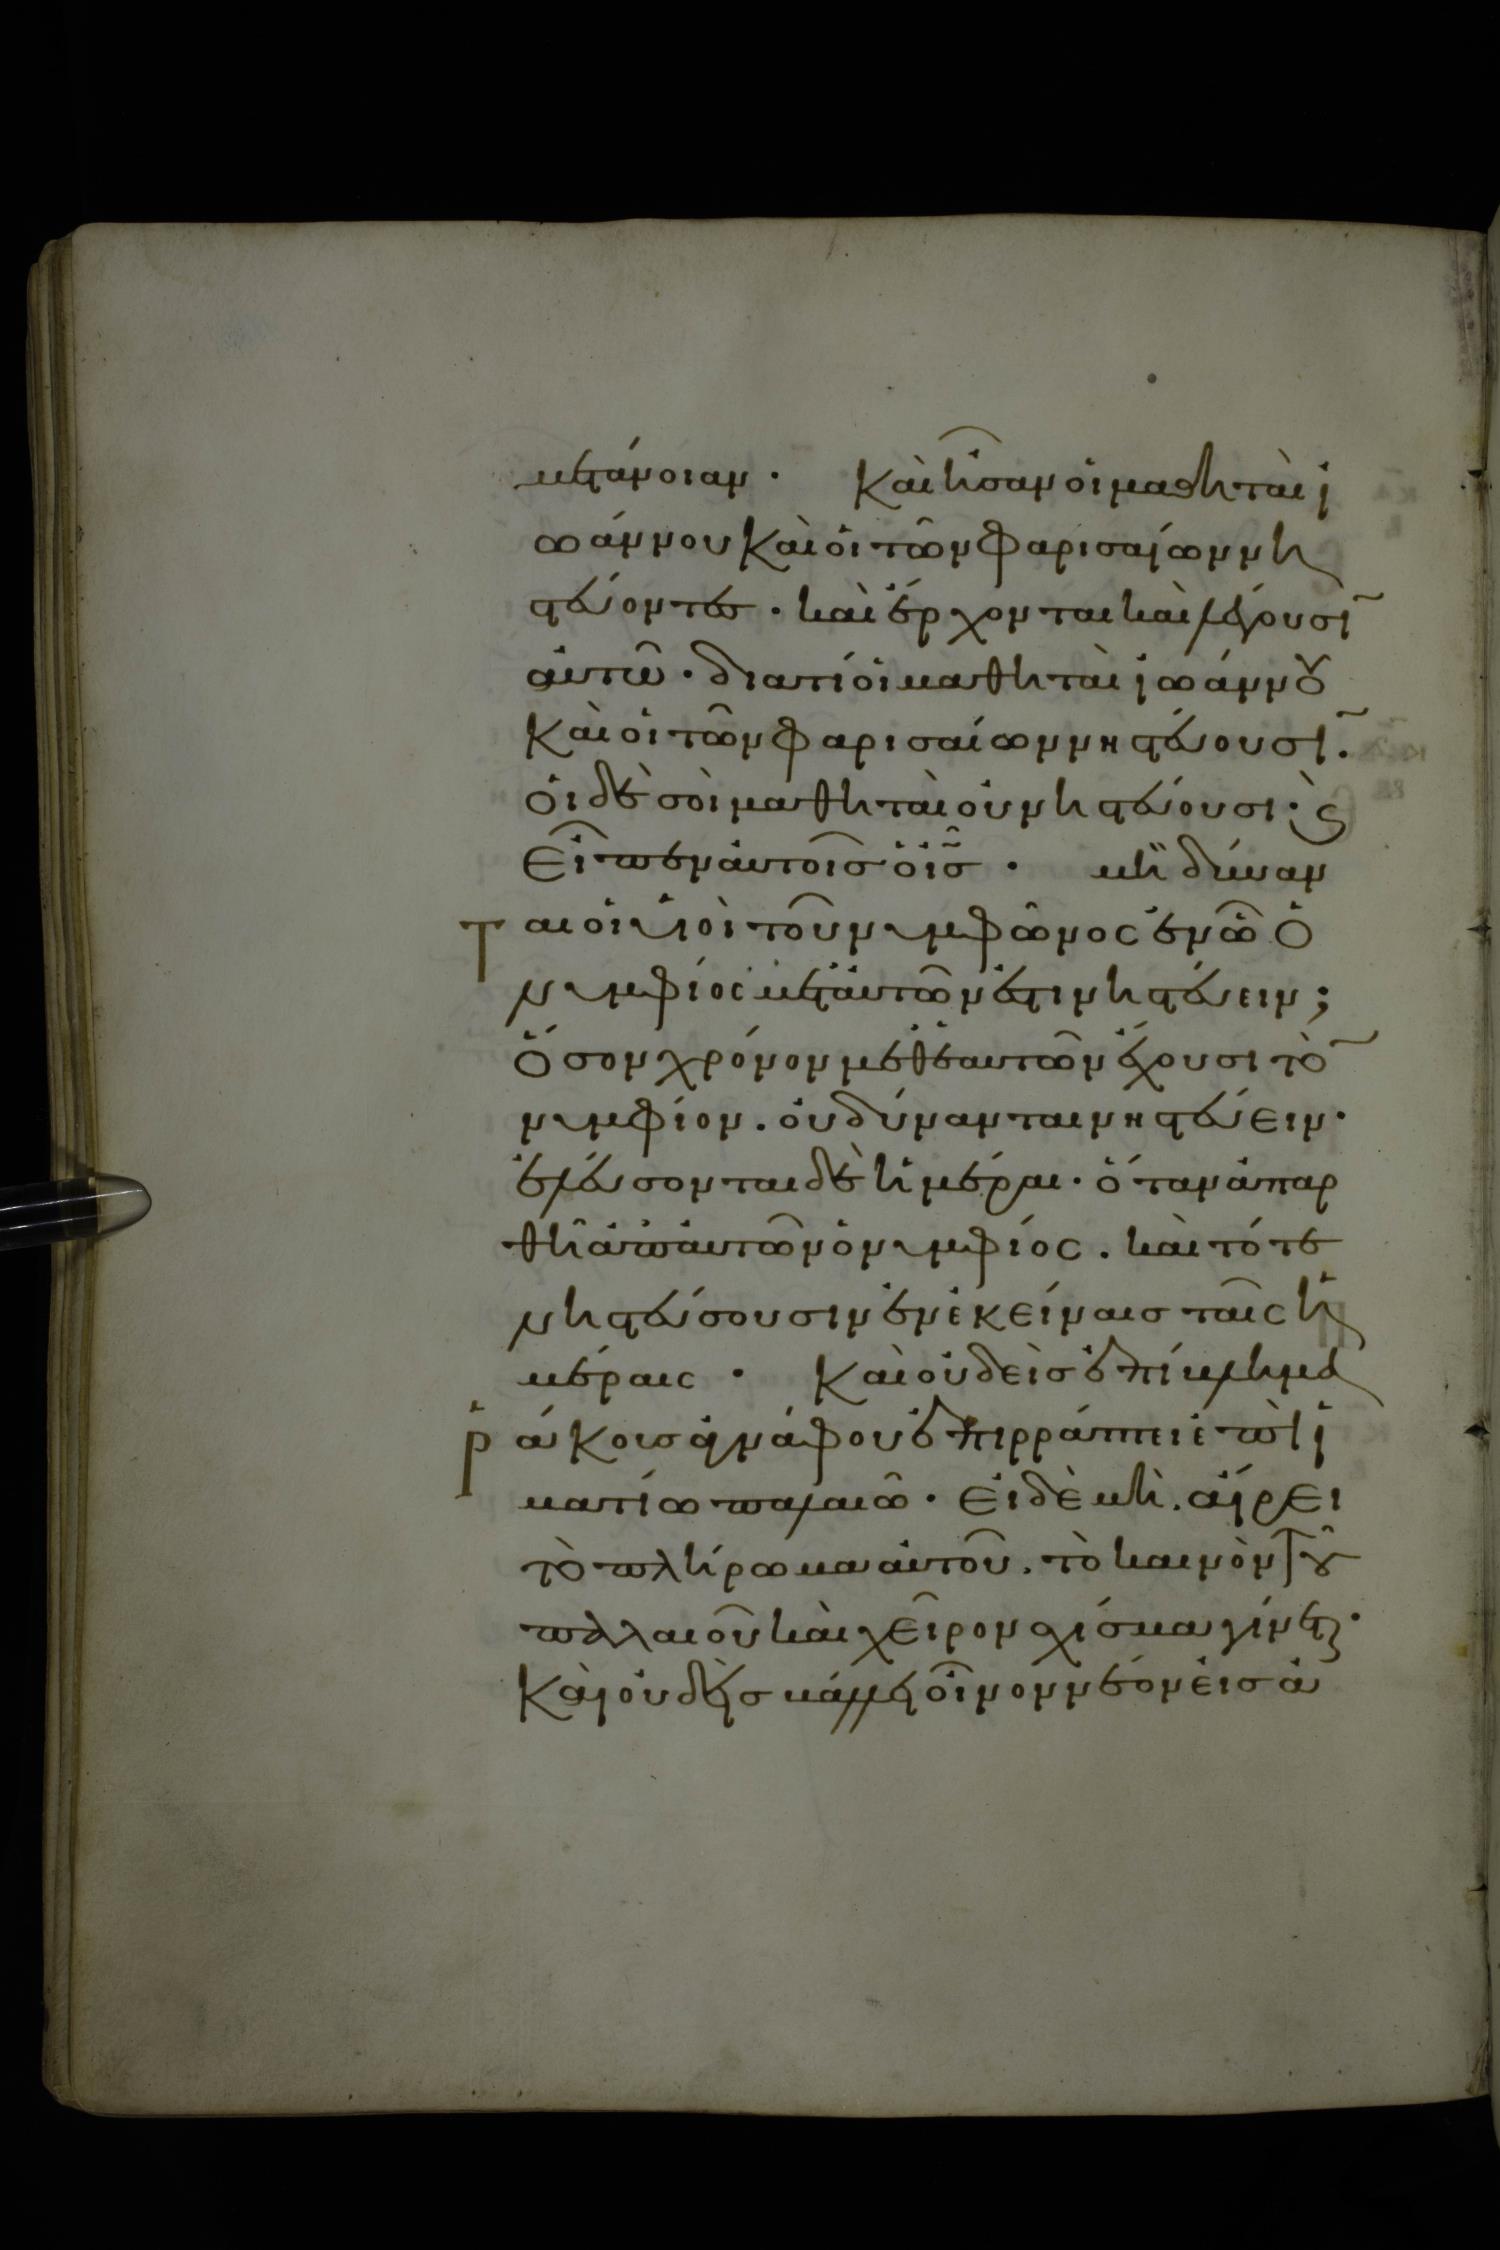 μετάνοιαν · Καὶ ἦσαν οἱ μαθηταὶ ἰ
ωάννου καὶ οἱ τῶν φαρισαίων νη
στεύοντες · καὶ ἔρχονται καὶ λέγουσῖ
αὐτῶ · διατί οἱ μαθηταὶ ἰωάννου
καὶ οἱ τῶν φαρισαίων νηστεύουσῖ .
οἱ δὲ σοὶ μαθηταὶ οὐ νηστεύουσι · ϛ̀
εἶπεν αὐτοῖς ὁ ι̅ς̅ · μὴ δύναν
ται οἱ υἱοὶ τοῦ νυμφῶνος ἐν ὧ ὁ
νυμφίος μετ' αὐτῶν ἐστι νηστεύειν ;
ὅσον χρόνον μεθ' ἑαυτῶν ἔχουσι τὸ̅
νυμφίον . οὐ δύνανται νηστεύειν ·
ἐλεύσονται δὲ ἡμέραι · ὅταν ἀπαρ
θῆ ἀπ' αὐτῶν ὁ νυμφίος . καὶ τότε
νηστεύσουσιν ἐν ἐκείναις ταῖς ἡ
μέραις · Καὶ οὐδεὶς ἐπίβλημα
ῥάκους ἀγνάφου ἐπιρράπτει ἐπὶ ἱ
ματίω παλαιῶ · εἰ δὲ μὴ . αἴρει
τὸ πλήρωμα αὐτοῦ . τὸ καινὸν τοῦ
παλαιοῦ καὶ χεῖρον σχίσμα γίνεται ·
Καὶ οὐδεὶς βάλλει οἶνον νέον εἰς ἀ